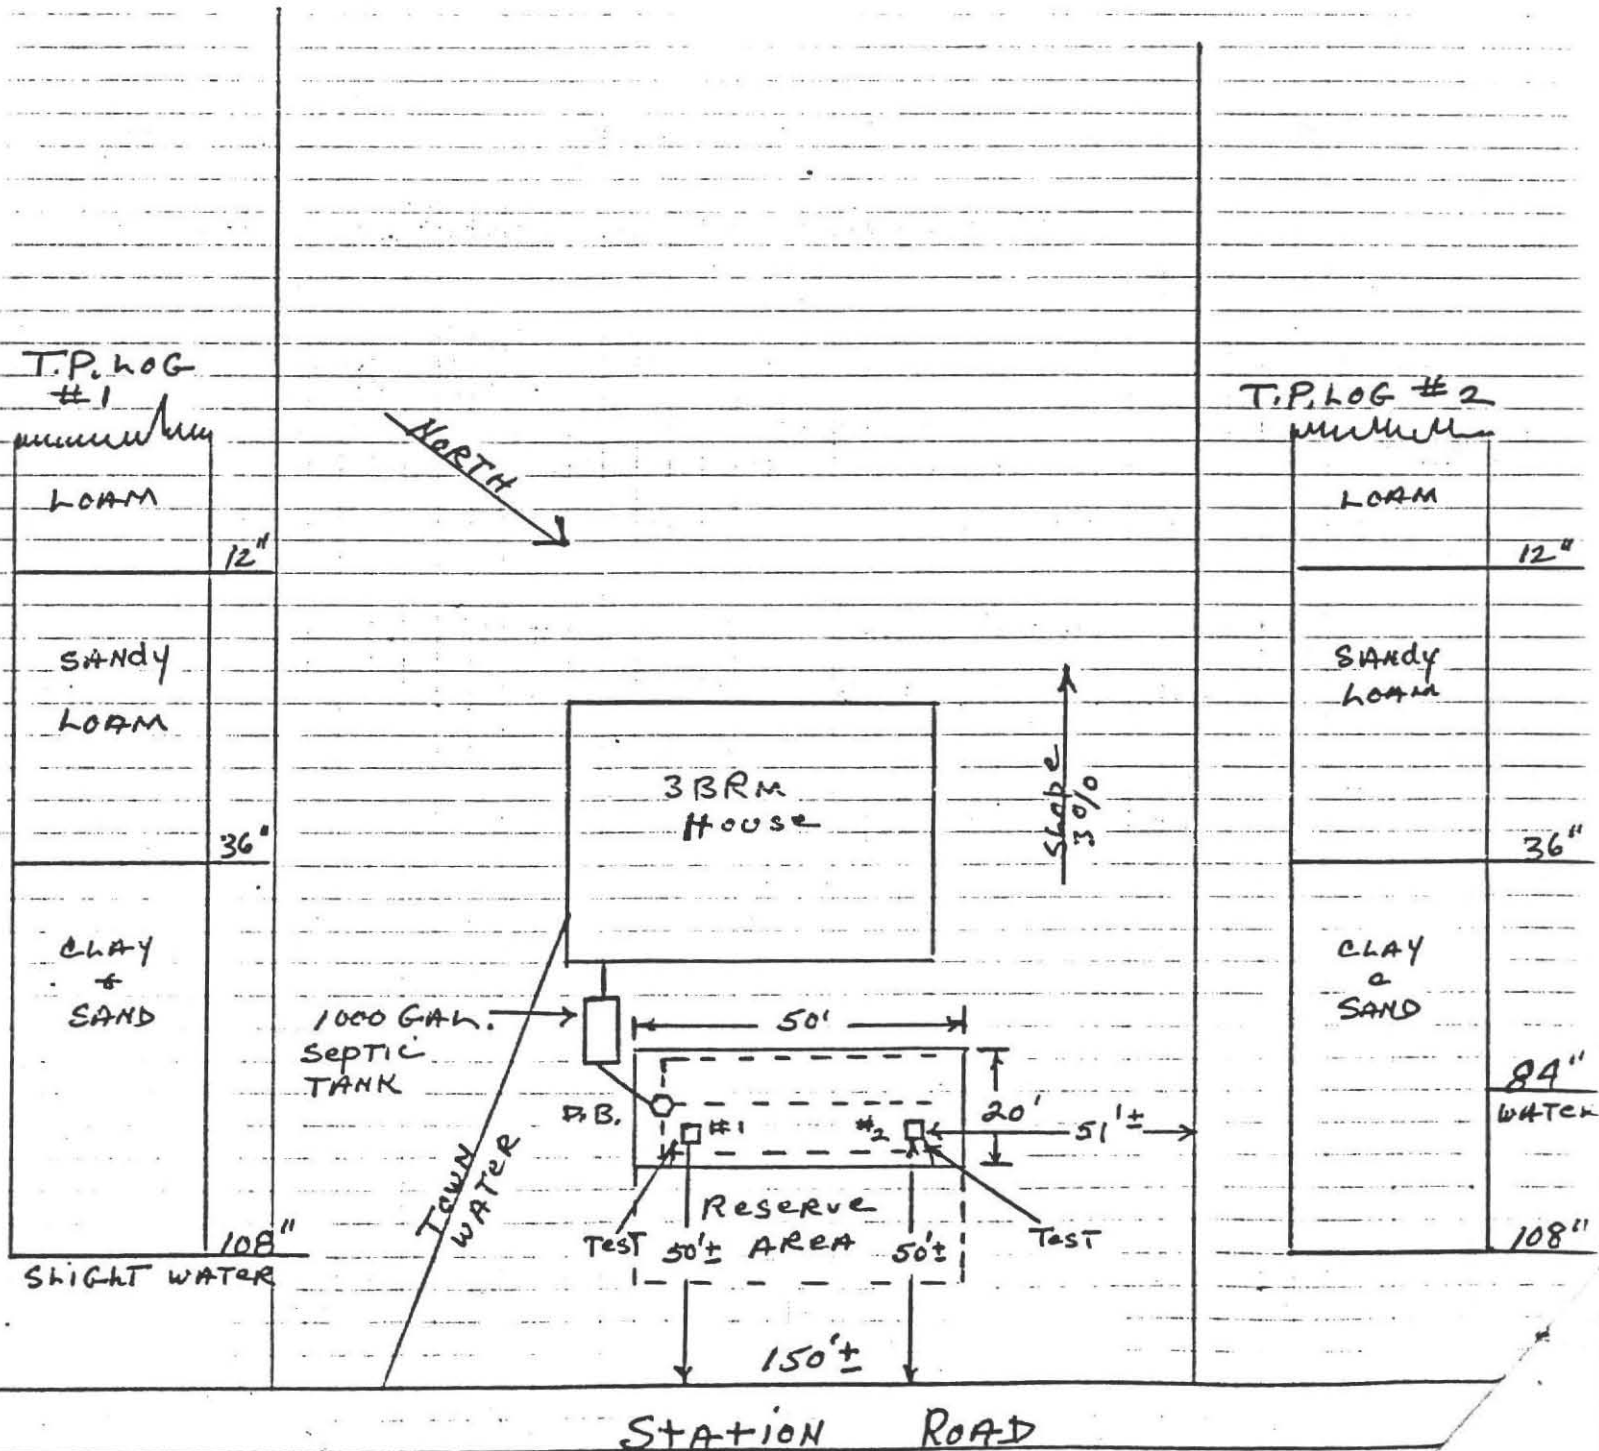 T.P. LOG
#1
LOAM
12"
SANDY
LOAM
36"
CLAY
+
SAND
108"
SLIGHT WATER
NORTH
3 BRM
House
Slope
3%
1000 GAL.
Septic
TANK
D.B.
50'
20'
51'±
#1
#2
Test
Test
Reserve
AREA
50'±
50'±
TOWN
WATER
150'±
Station Road
T.P. LOG #2
LOAM
12"
SANDY
LOAM
36"
CLAY
&
SAND
84"
WATER
108"